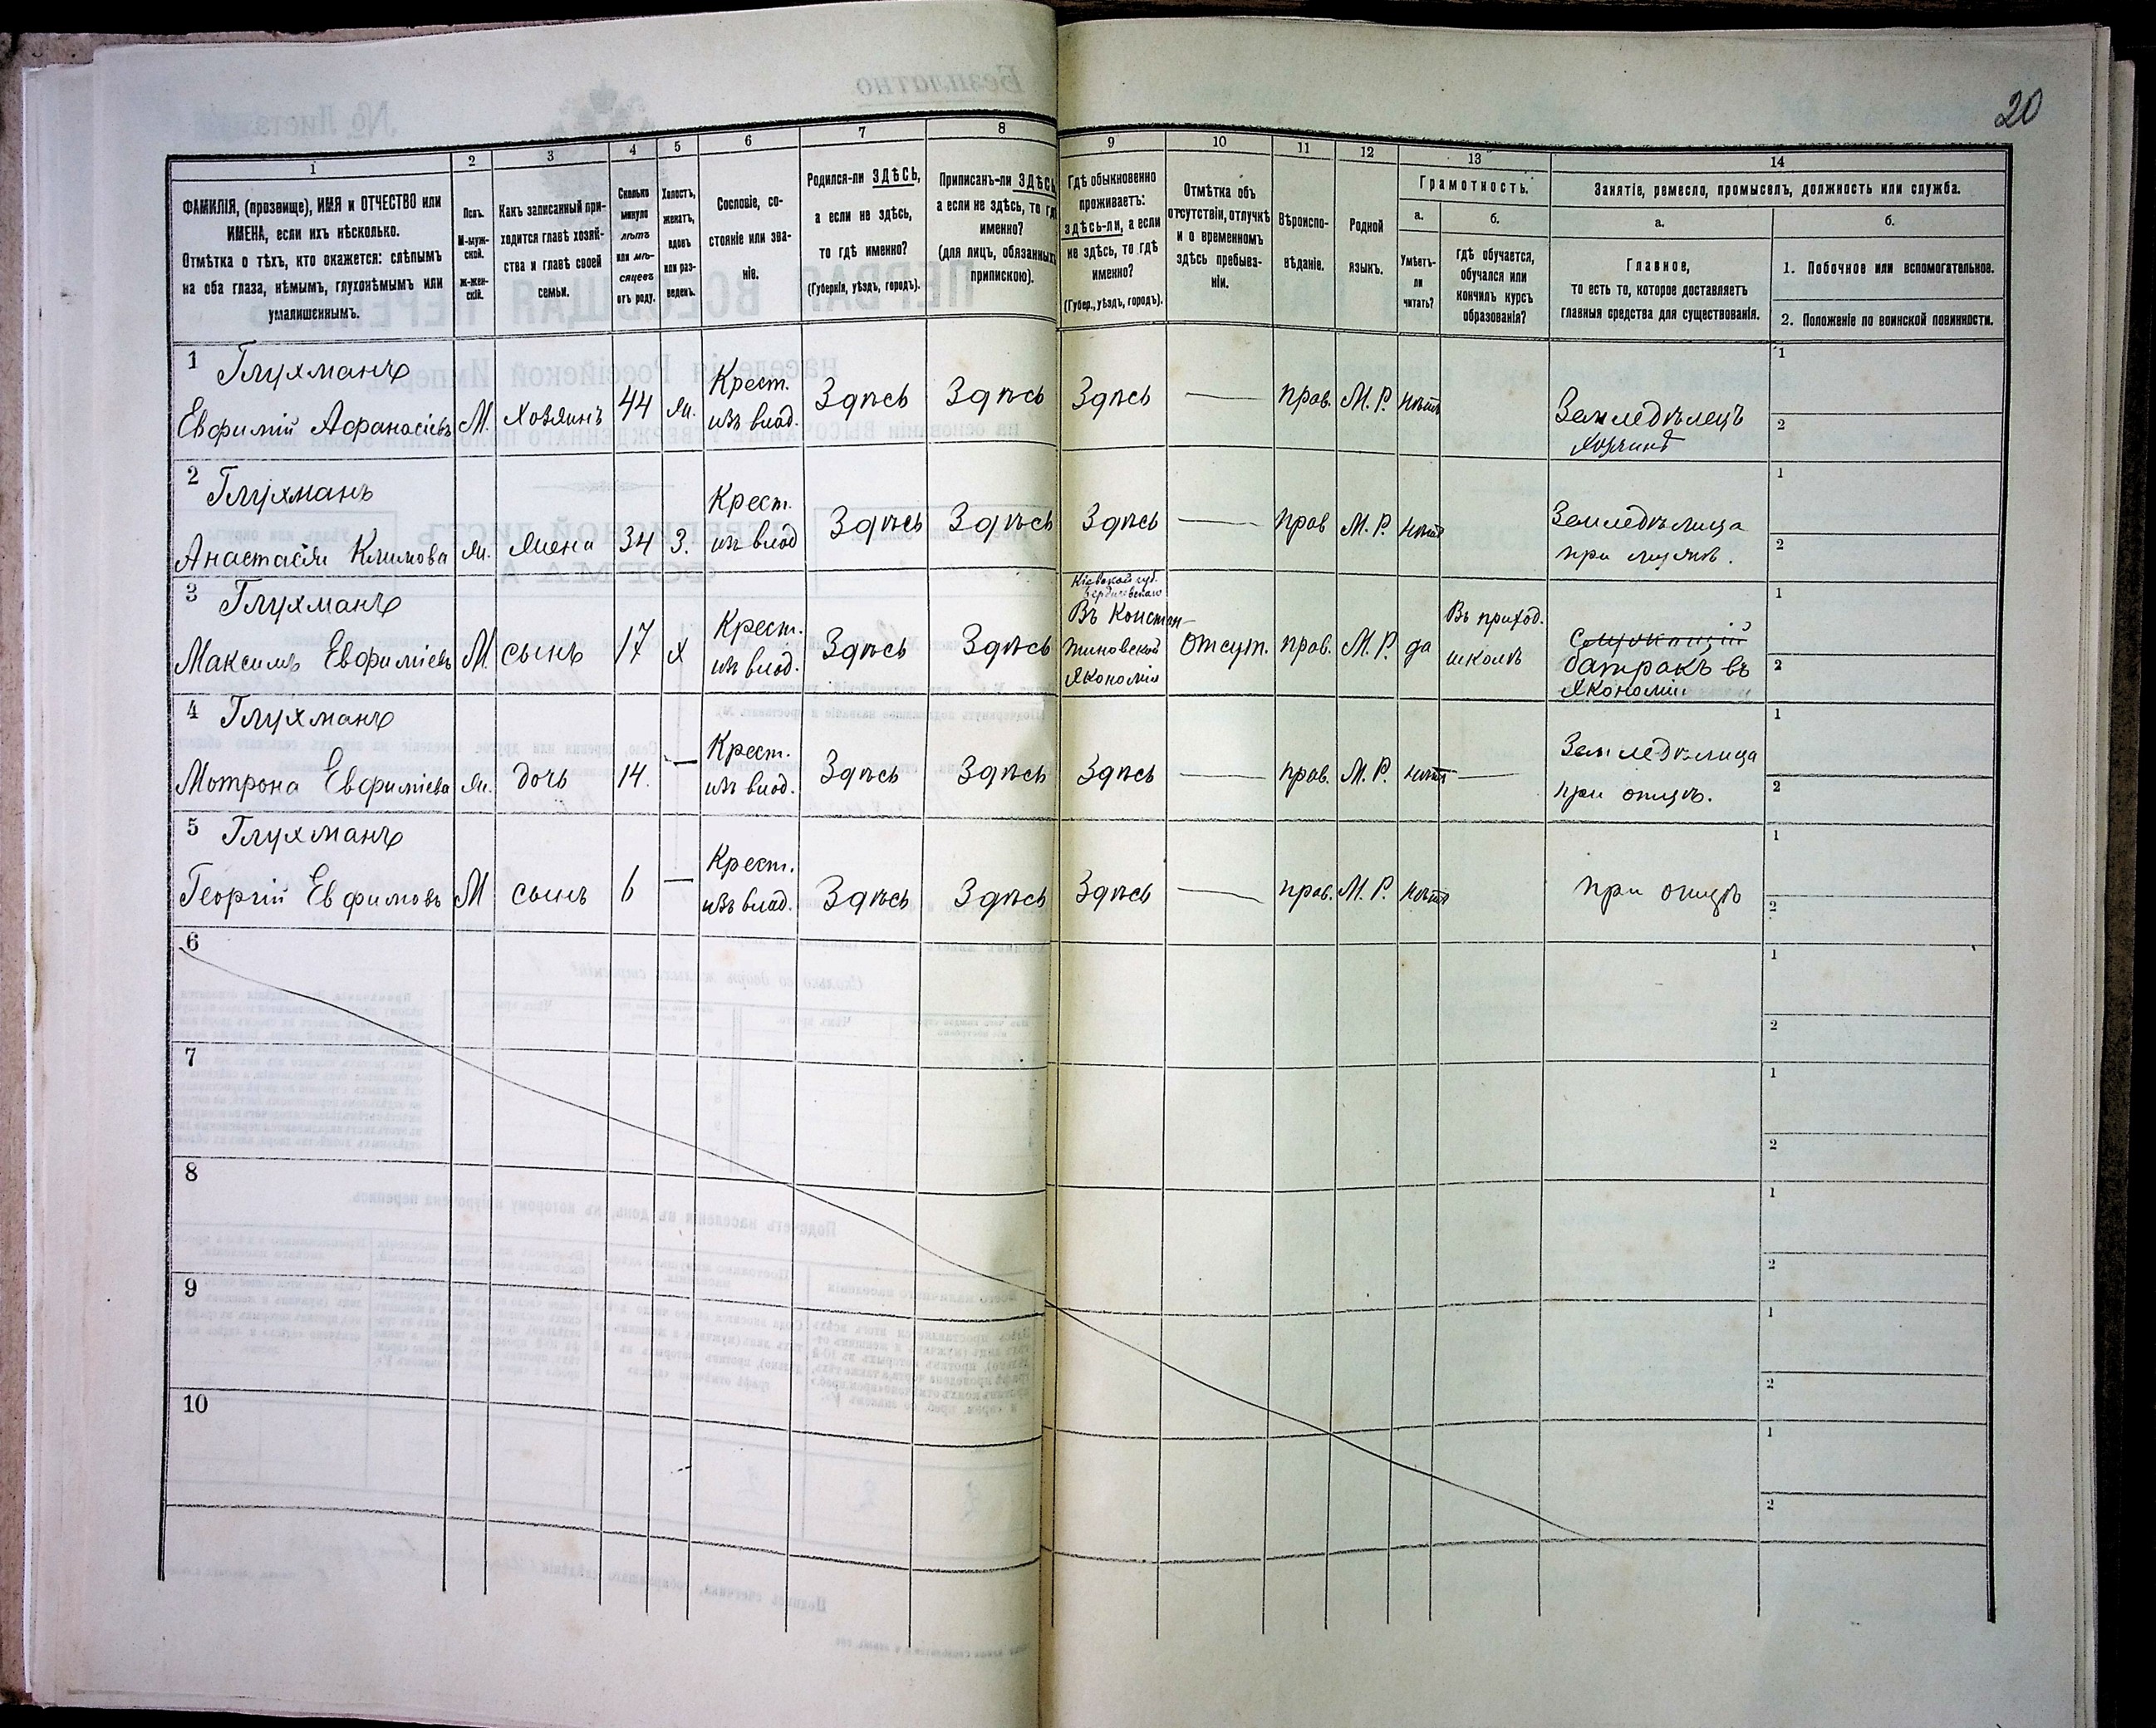 20
1
2
3
4
5
6
7
8
9
10
11
12
13
14
ФАМИЛІЯ, (прозвище), ИМЯ и ОТЧЕСТВО или
ИМЕНА, если ихъ нѣсколько.
Отмѣтка о тѣхъ, кто окажется: слѣпымъ
на оба глаза, нѣмымъ, глухонѣмымъ или
умалишеннымъ.
Полъ.
М-муж-
ской.
Ж-жен-
скій.
Какъ записанный при-
ходится главѣ хозяй-
ства и главѣ своей
семьи.
Сколько
минуло
лѣтъ
или мѣ-
сяцевъ
отъ роду.
Холостъ,
женатъ,
вдовъ
или раз-
веденъ.
Сословіе, со-
стояніе или зва-
ніе.
Родился-ли ЗДѢСЬ,
а если не здѣсь,
то гдѣ именно?
(Губернія, уѣздъ, городъ).
Приписанъ-ли ЗДѢСЬ
а если не здѣсь, то гдѣ
именно?
(для лицъ, обязанныхъ
припискою).
Гдѣ обыкновенно
проживаетъ:
здѣсь-ли, а если
не здѣсь, то гдѣ
именно?
(Губер., уѣздъ, городъ).
Отмѣтка объ
отсутствіи, отлучкѣ
и о временномъ
здѣсь пребыва-
ніи.
Вѣроиспо-
вѣданіе.
Родной
языкъ.
Грамотность.
а.
Умѣетъ-
ли
читать?
б.
Гдѣ обучается,
обучался или
кончилъ курсъ
образованія?
Занятіе, ремесло, промыселъ, должность или служба.
а.
Главное,
то есть то, которое доставляетъ
главныя средства для существованія.
б.
1. Побочное или вспомогательное.
2. Положеніе по воинской повинности.
1 Глухманъ
Евфимій Афанасіевъ М. Хозяинъ 44 ж. Крест. изъ влад. Здѣсь Здѣсь Здѣсь — прав. М. Р. нѣтъ Земледѣлецъ
хозяинъ
1
2
2 Глухманъ
Анастасія Климова ж. жена 34 З. Крест. изъ влад Здѣсь Здѣсь Здѣсь — прав М. Р. нѣтъ Земледѣлица
при мужѣ.
1
2
3 Глухманъ
Кіевской губ.
Бердичевскаго
Максимъ Евфиміевъ М. сынъ 17 х Крест. изъ влад. Здѣсь Здѣсь Въ Констан-
тиновской
Экономіи
Отсут. прав. М. Р. да Въ приход.
школѣ
Служащій
батракъ въ
Экономіи
1
2
4 Глухманъ
Мотрона Евфиміева ж. дочь 14. — Крест. изъ влад. Здѣсь Здѣсь Здѣсь — прав. М. Р. нѣтъ — Земледѣлица
при отцѣ.
1
2
5 Глухманъ
Георгій Евфимовъ М сынъ 6 — Крест. изъ влад. Здѣсь Здѣсь Здѣсь — прав. М. Р. нѣтъ при отцѣ
1
2
6
1
2
7
1
2
8
1
2
9
1
2
10
1
2